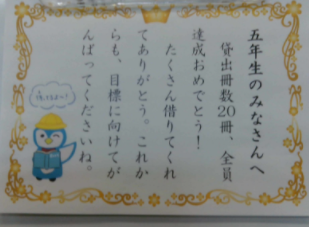 五年生のみなさんへ
貸出冊数20冊、全員
達成おめでとう！
たくさん借りてくれ
てありがとう。これか
らも、目標に向けてが
んばってくださいね。